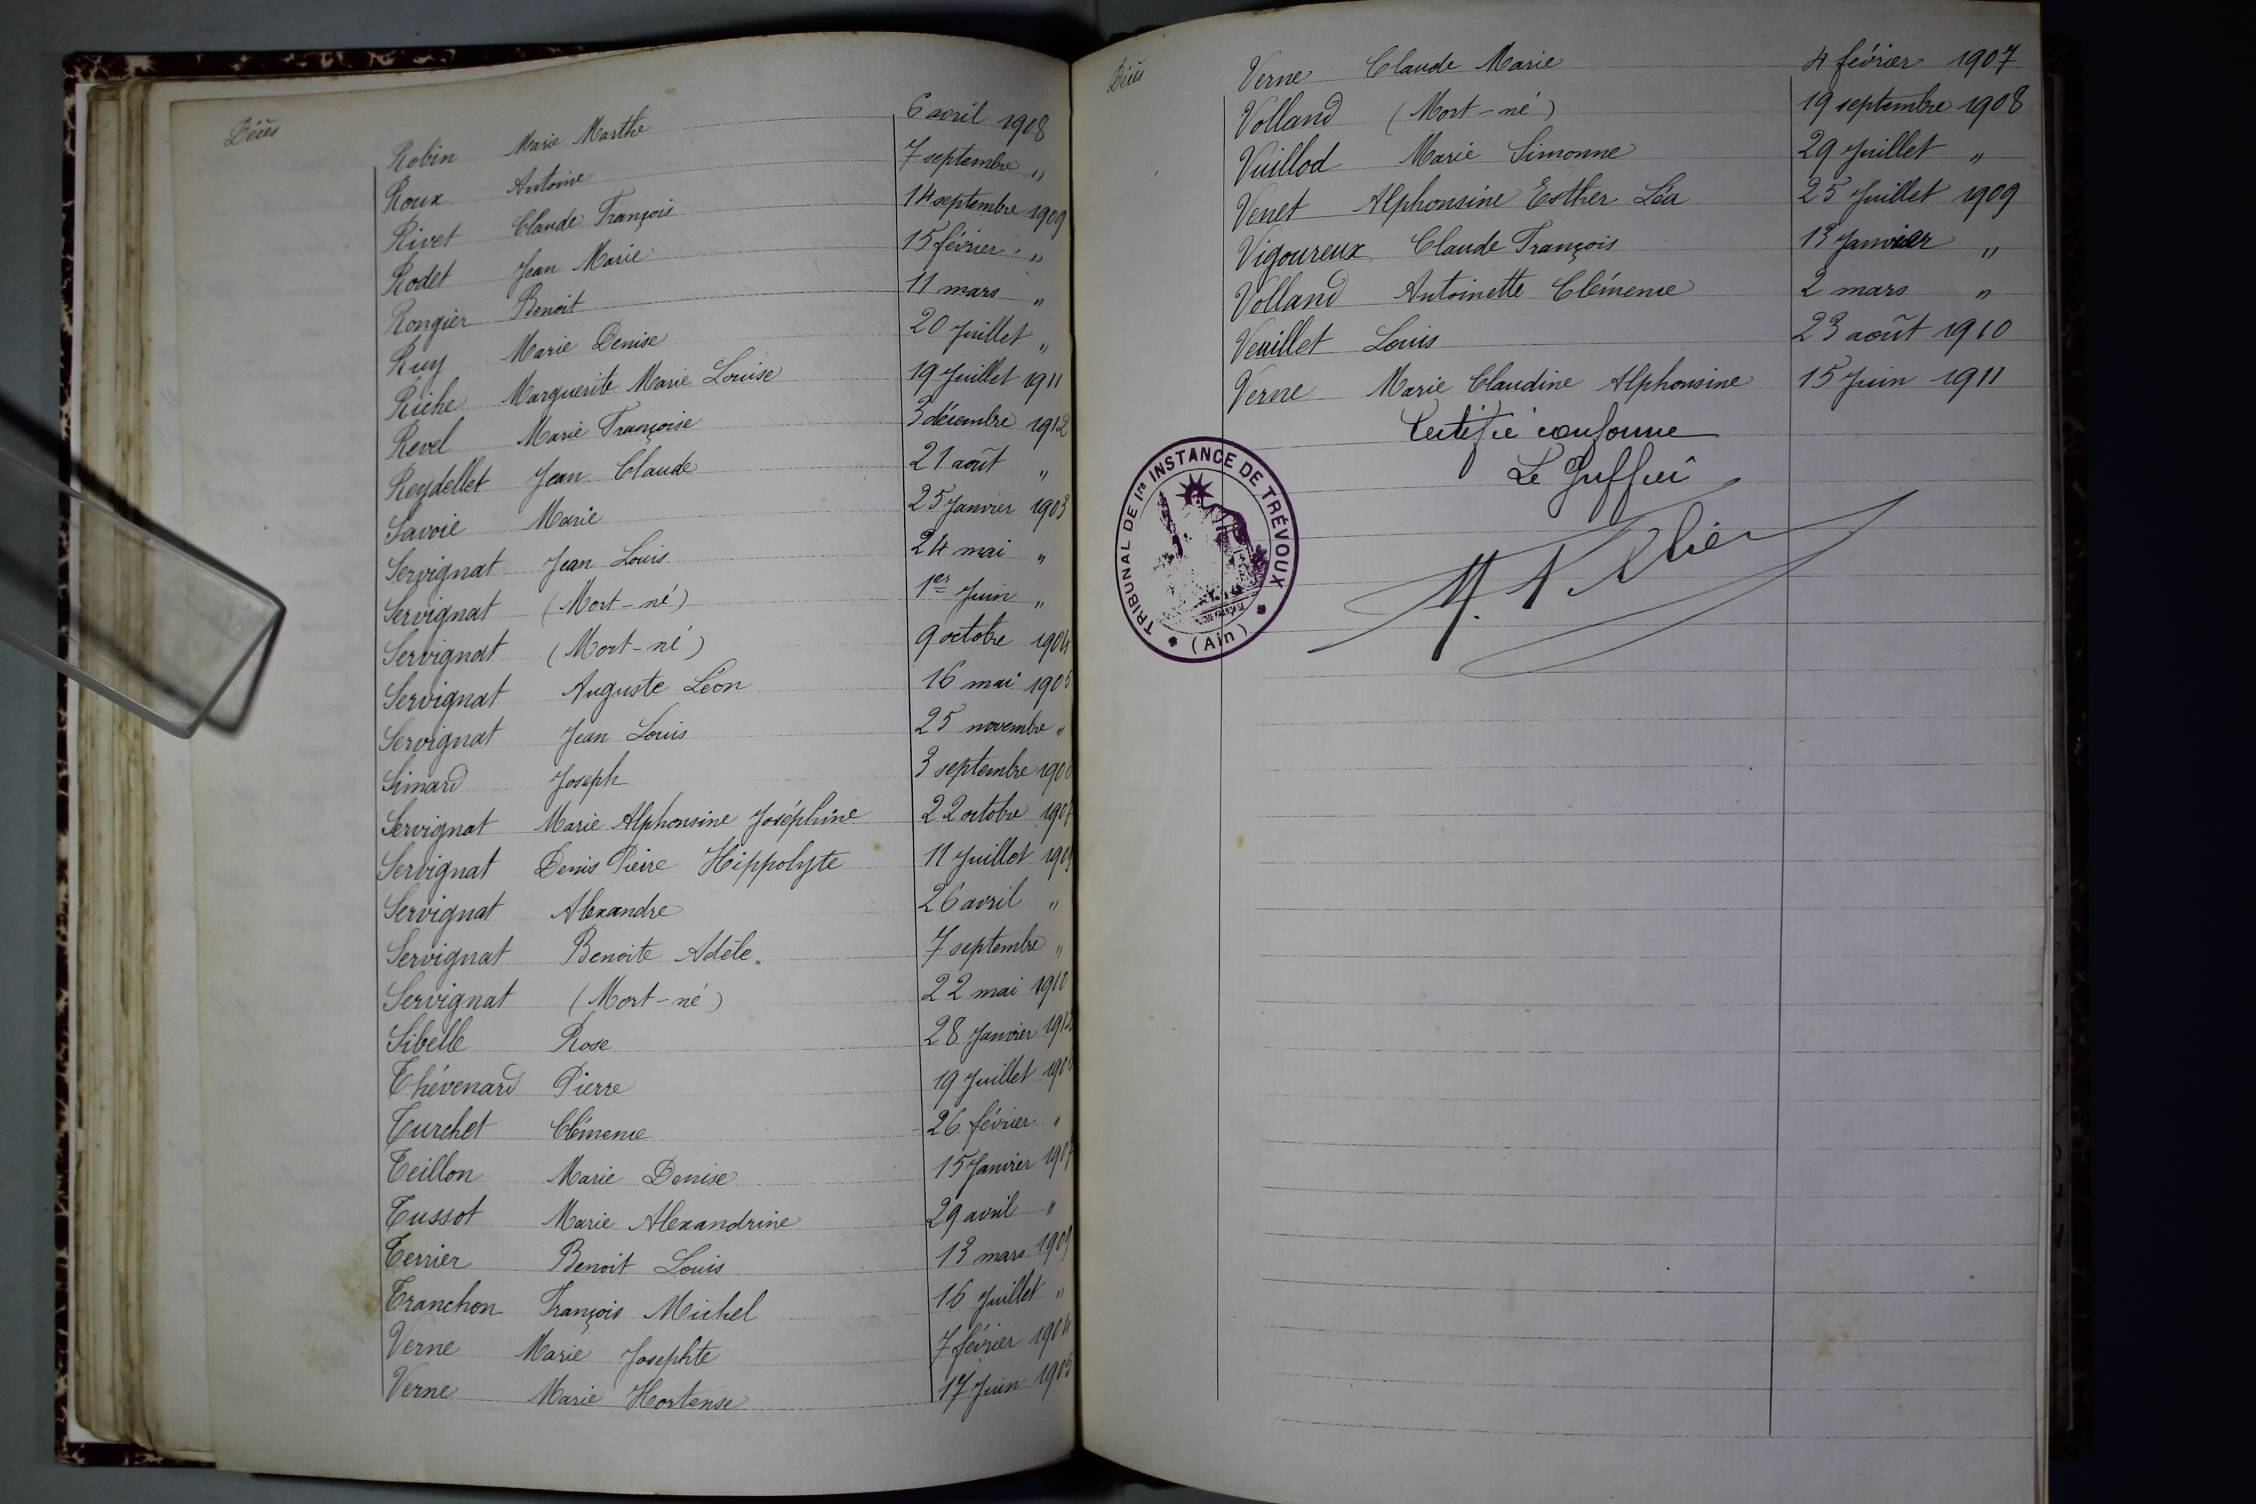 Décès
Robin Marie Marthe 6 avril 1908
Roux Antoine 7 septembre "
Rivet Claude François 14 septembre 1909
Rodet Jean Marie 15 février "
Rongier Benoit 11 mars "
Ruy Marie Denise 20 Juillet "
Riche Marguerite Marie Louise 19 Juillet 1911
Revel Marie Françoise 3 décembre 1912
Reydellet Jean Claude 21 août "
Savoie Marie 25 Janvier 1903
Servignat Jean Louis 24 mai "
Servignat (Mort-né) 1er Juin "
Servignat (Mort-né) 9 octobre 1904
Servignat Auguste Léon 16 mai 1905
Servignat Jean Louis 25 novembre "
Simard Joseph 3 septembre
Servignat Marie Alphonsine Joséphine 22 octobre 1907
Servignat Denis Pierre Hippolyte 11 Juillet 1909
Servignat Alexandre 26 avril "
Servignat Benoite Adèle. 7 septembre "
Servignat (Mort-né) 22 mai 1910
Sibelle Rose 28 Janvier 1912
Thévenard Pierre 19 Juillet
Turchet Clémence 26 février "
Teillon Marie Denise 15 Janvier 1907
Tussot Marie Alexandrine 29 avril "
Terrier Benoit Louis 13 mars 1909
Tranchon François Michel 16 Juillet "
Verne Marie Josephte 7 février 1904
Verne Marie Hortense 17 Juin 1905
Décès
Verne Claude Marie 4 février 1907
Volland (Mort-né) 19 septembre 1908
Vuillod Marie Simonne 29 Juillet "
Venet Alphonsine Esther Léa 25 Juillet 1909
Vigoureux Claude François 13 Janvier "
Volland Antoinette Clémence 2 mars "
Veuillet Louis 23 août 1910
Verne Marie Claudine Alphonsine 15 Juin 1911
Certifié conforme
Le Greffier
TRIBUNAL DE 1re INSTANCE DE TRÉVOUX
(Ain)